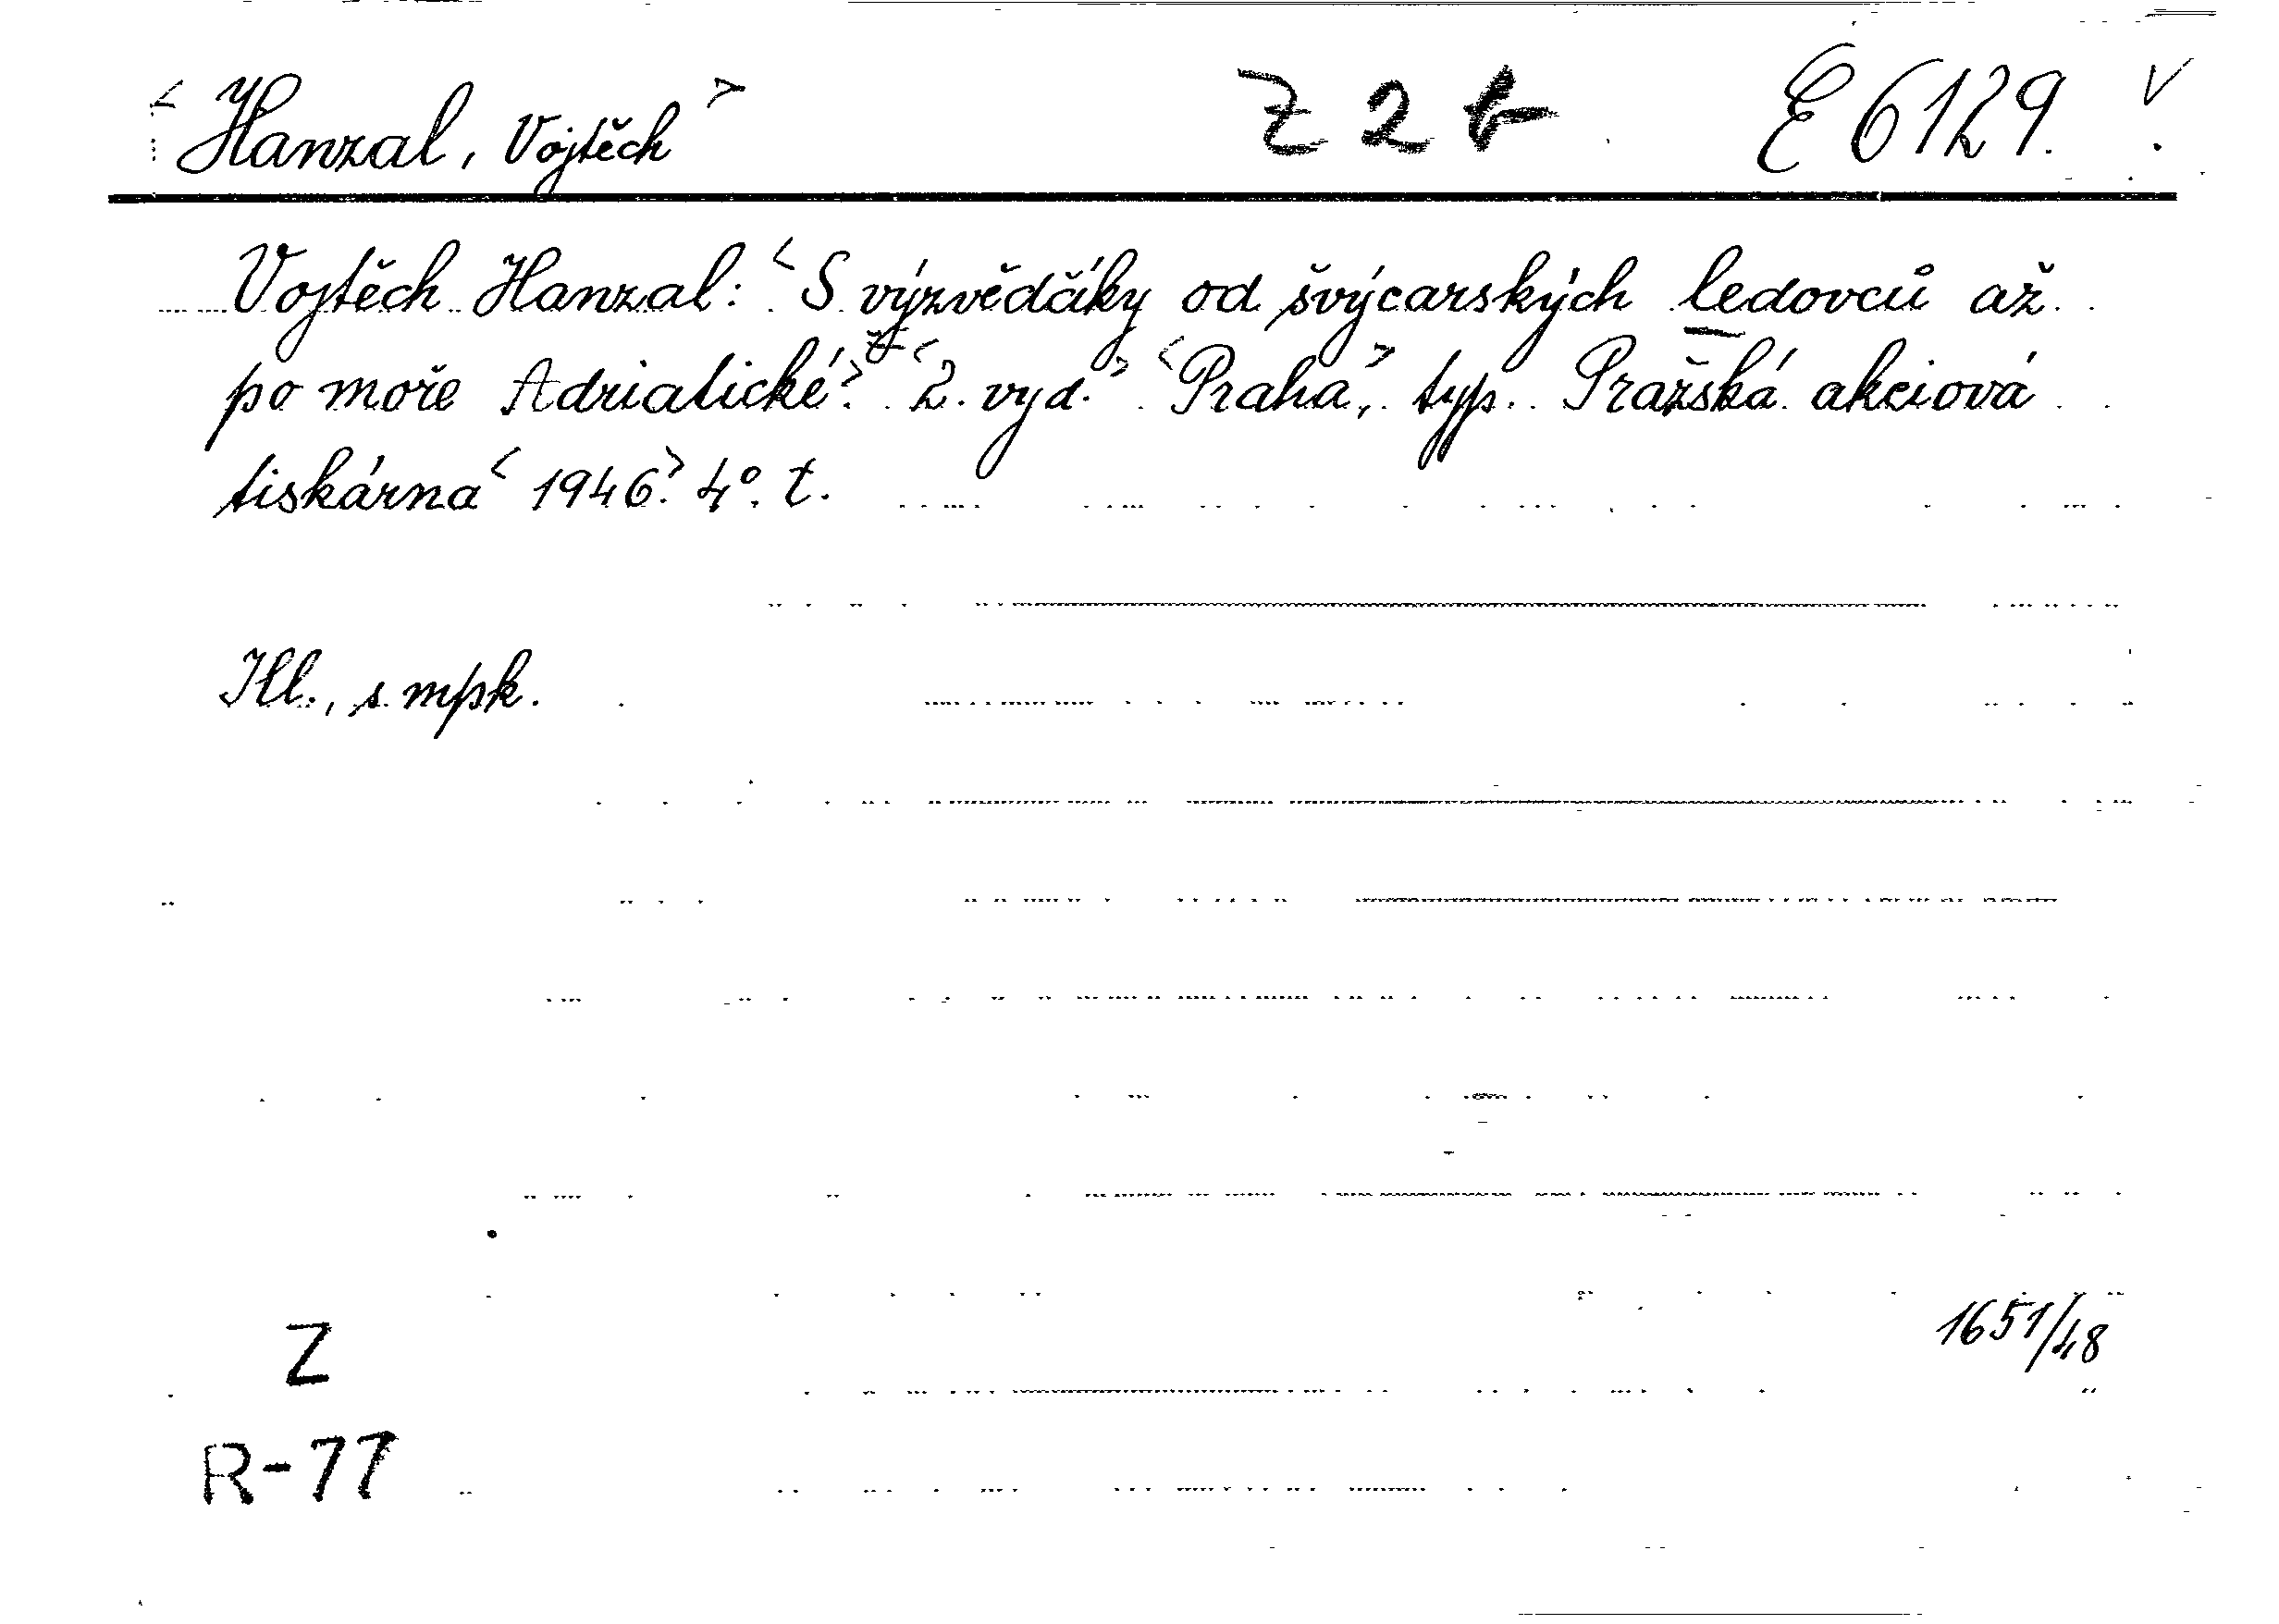 <Hanzal, Vojtěch> Z 2 b E 6129. V
Vojtěch Hanzal: <S výzvědčíky od švýcarských ledovců až
po moře Adriatické.> <2. vyd.> <Praha,> typ. Pražská akciová
tiskárna <1946.> 4°. t.
Ill., s mpk.
1651/48
Z
R-77